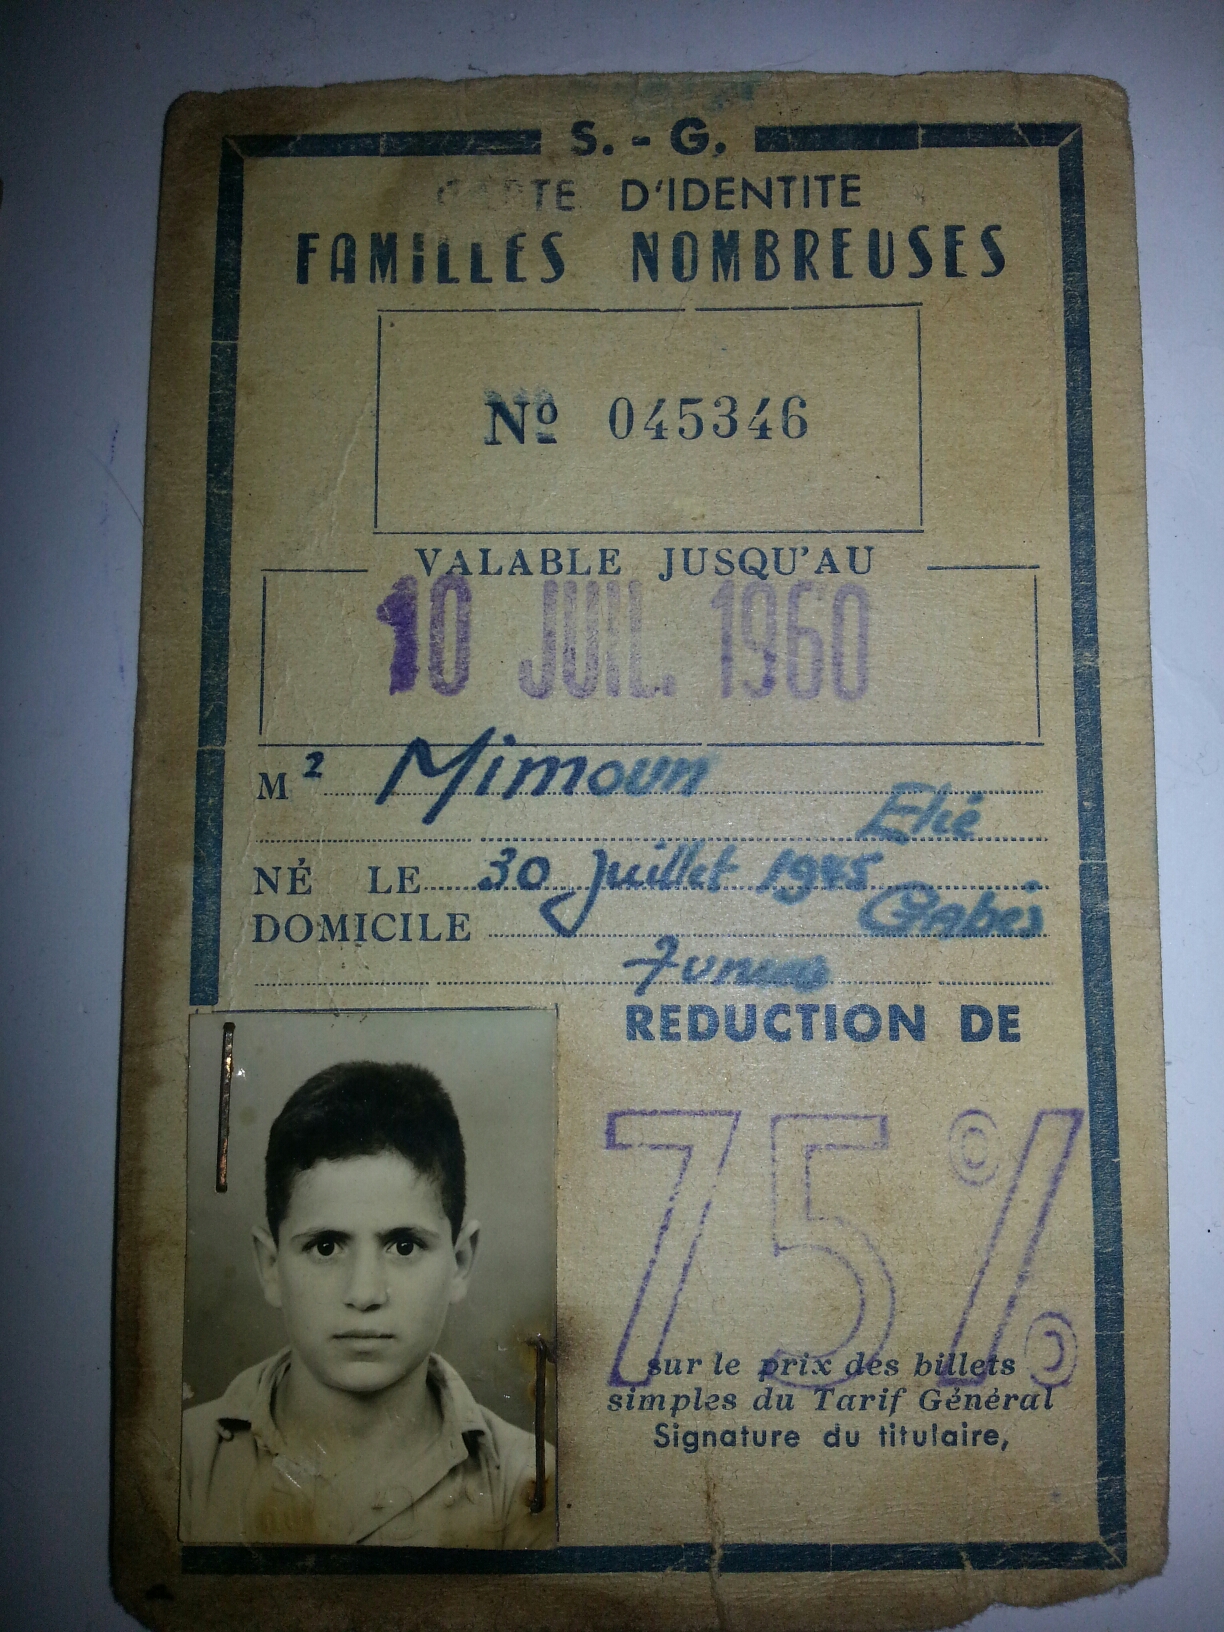 S. - G.
CARTE D'IDENTITE
FAMILLES NOMBREUSES
Nº 045346
VALABLE JUSQU'AU
10 JUIL. 1960
M² Mimoun
Elie
NÉ LE 30 juillet 1945
DOMICILE Gabès
REDUCTION DE
75%
sur le prix des billets
simples du Tarif Général
Signature du titulaire,